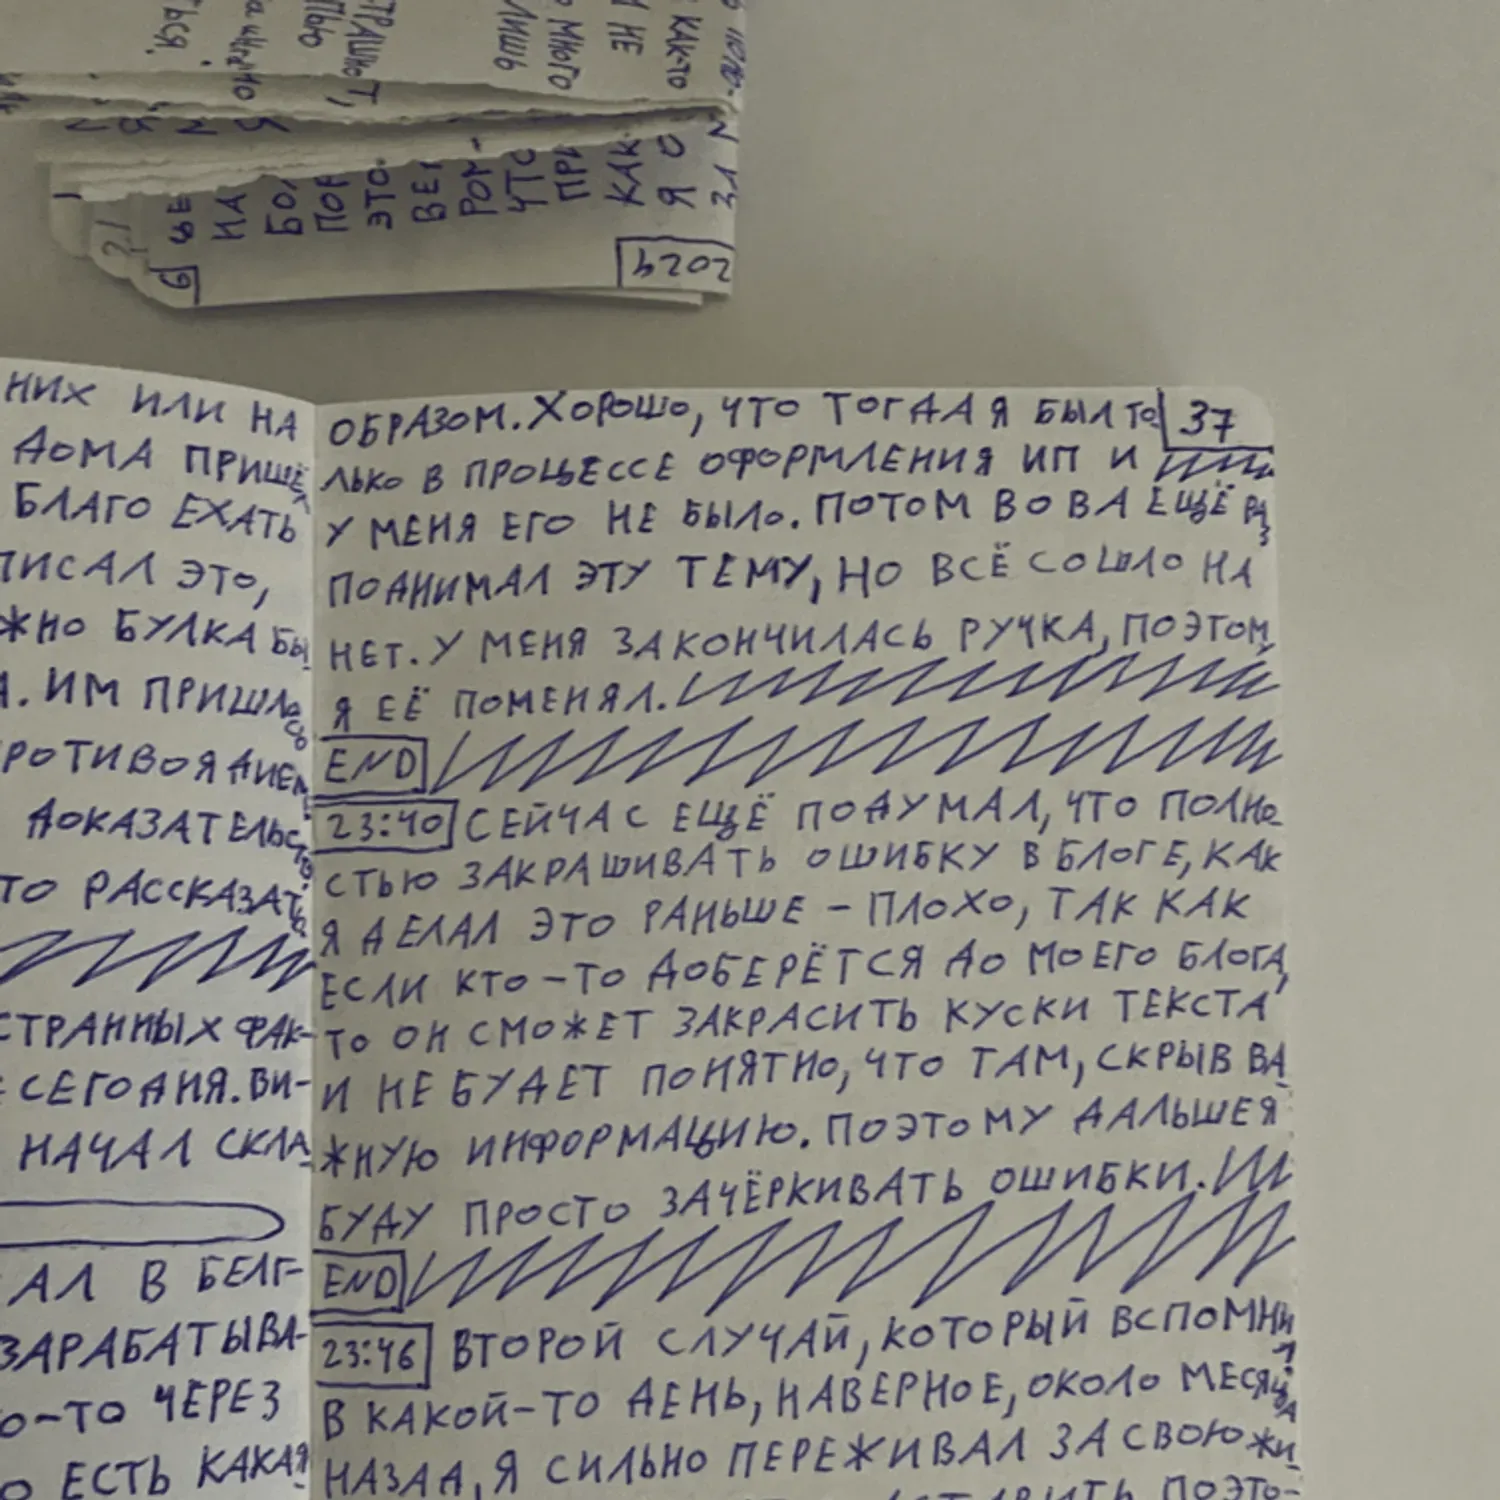 ТРАШНО
ЛИШЬ
МНОГО
И НЕ
КАК-ТО
НА
ПОР
ЭТО
ВЕ
РОМ-
ЧТО
ПРИ
КАК
Я О
ЗА
2024
6
НИХ ИЛИ НА
ДОМА ПРИШЁ
БЛАГО ЕХАТЬ
ПИСАЛ ЭТО,
ЖНО БУЛКА БЫ
А. ИМ ПРИШЛОСЬ
РОТИВОЯДИЕМ
ДОКАЗАТЕЛЬСТВО.
ТО РАССКАЗАТЬ
СТРАННЫХ ФАК-
СЕГОДНЯ. ВИ-
НАЧАЛ СКЛА
АЛ В БЕЛГ-
ЗАРАБАТЫВА-
О-ТО ЧЕРЕЗ
О ЕСТЬ КАКАЯ-
37
ОБРАЗОМ. ХОРОШО, ЧТО ТОГДА Я БЫЛ ТО
ЛЬКО В ПРОЦЕССЕ ОФОРМЛЕНИЯ ИП И
У МЕНЯ ЕГО НЕ БЫЛО. ПОТОМ ВОВА ЕЩЁ РАЗ
ПОДНИМАЛ ЭТУ ТЕМУ, НО ВСЁ СОШЛО НА
НЕТ. У МЕНЯ ЗАКОНЧИЛАСЬ РУЧКА, ПОЭТОМУ
Я ЕЁ ПОМЕНЯЛ.
END
23:40 СЕЙЧАС ЕЩЁ ПОДУМАЛ, ЧТО ПОЛНО
СТЬЮ ЗАКРАШИВАТЬ ОШИБКУ В БЛОГЕ, КАК
Я ДЕЛАЛ ЭТО РАНЬШЕ - ПЛОХО, ТАК КАК
ЕСЛИ КТО-ТО ДОБЕРЁТСЯ ДО МОЕГО БЛОГА,
ТО ОН СМОЖЕТ ЗАКРАСИТЬ КУСКИ ТЕКСТА
И НЕ БУДЕТ ПОНЯТНО, ЧТО ТАМ, СКРЫВ ВА-
ЖНУЮ ИНФОРМАЦИЮ. ПОЭТОМУ ДАЛЬШЕ Я
БУДУ ПРОСТО ЗАЧЁРКИВАТЬ ОШИБКИ.
END
23:46 ВТОРОЙ СЛУЧАЙ, КОТОРЫЙ ВСПОМНИЛ.
В КАКОЙ-ТО ДЕНЬ, НАВЕРНОЕ, ОКОЛО МЕСЯЦА
НАЗАД, Я СИЛЬНО ПЕРЕЖИВАЛ ЗА СВОЮ ЖИ-
ПОЭТО-